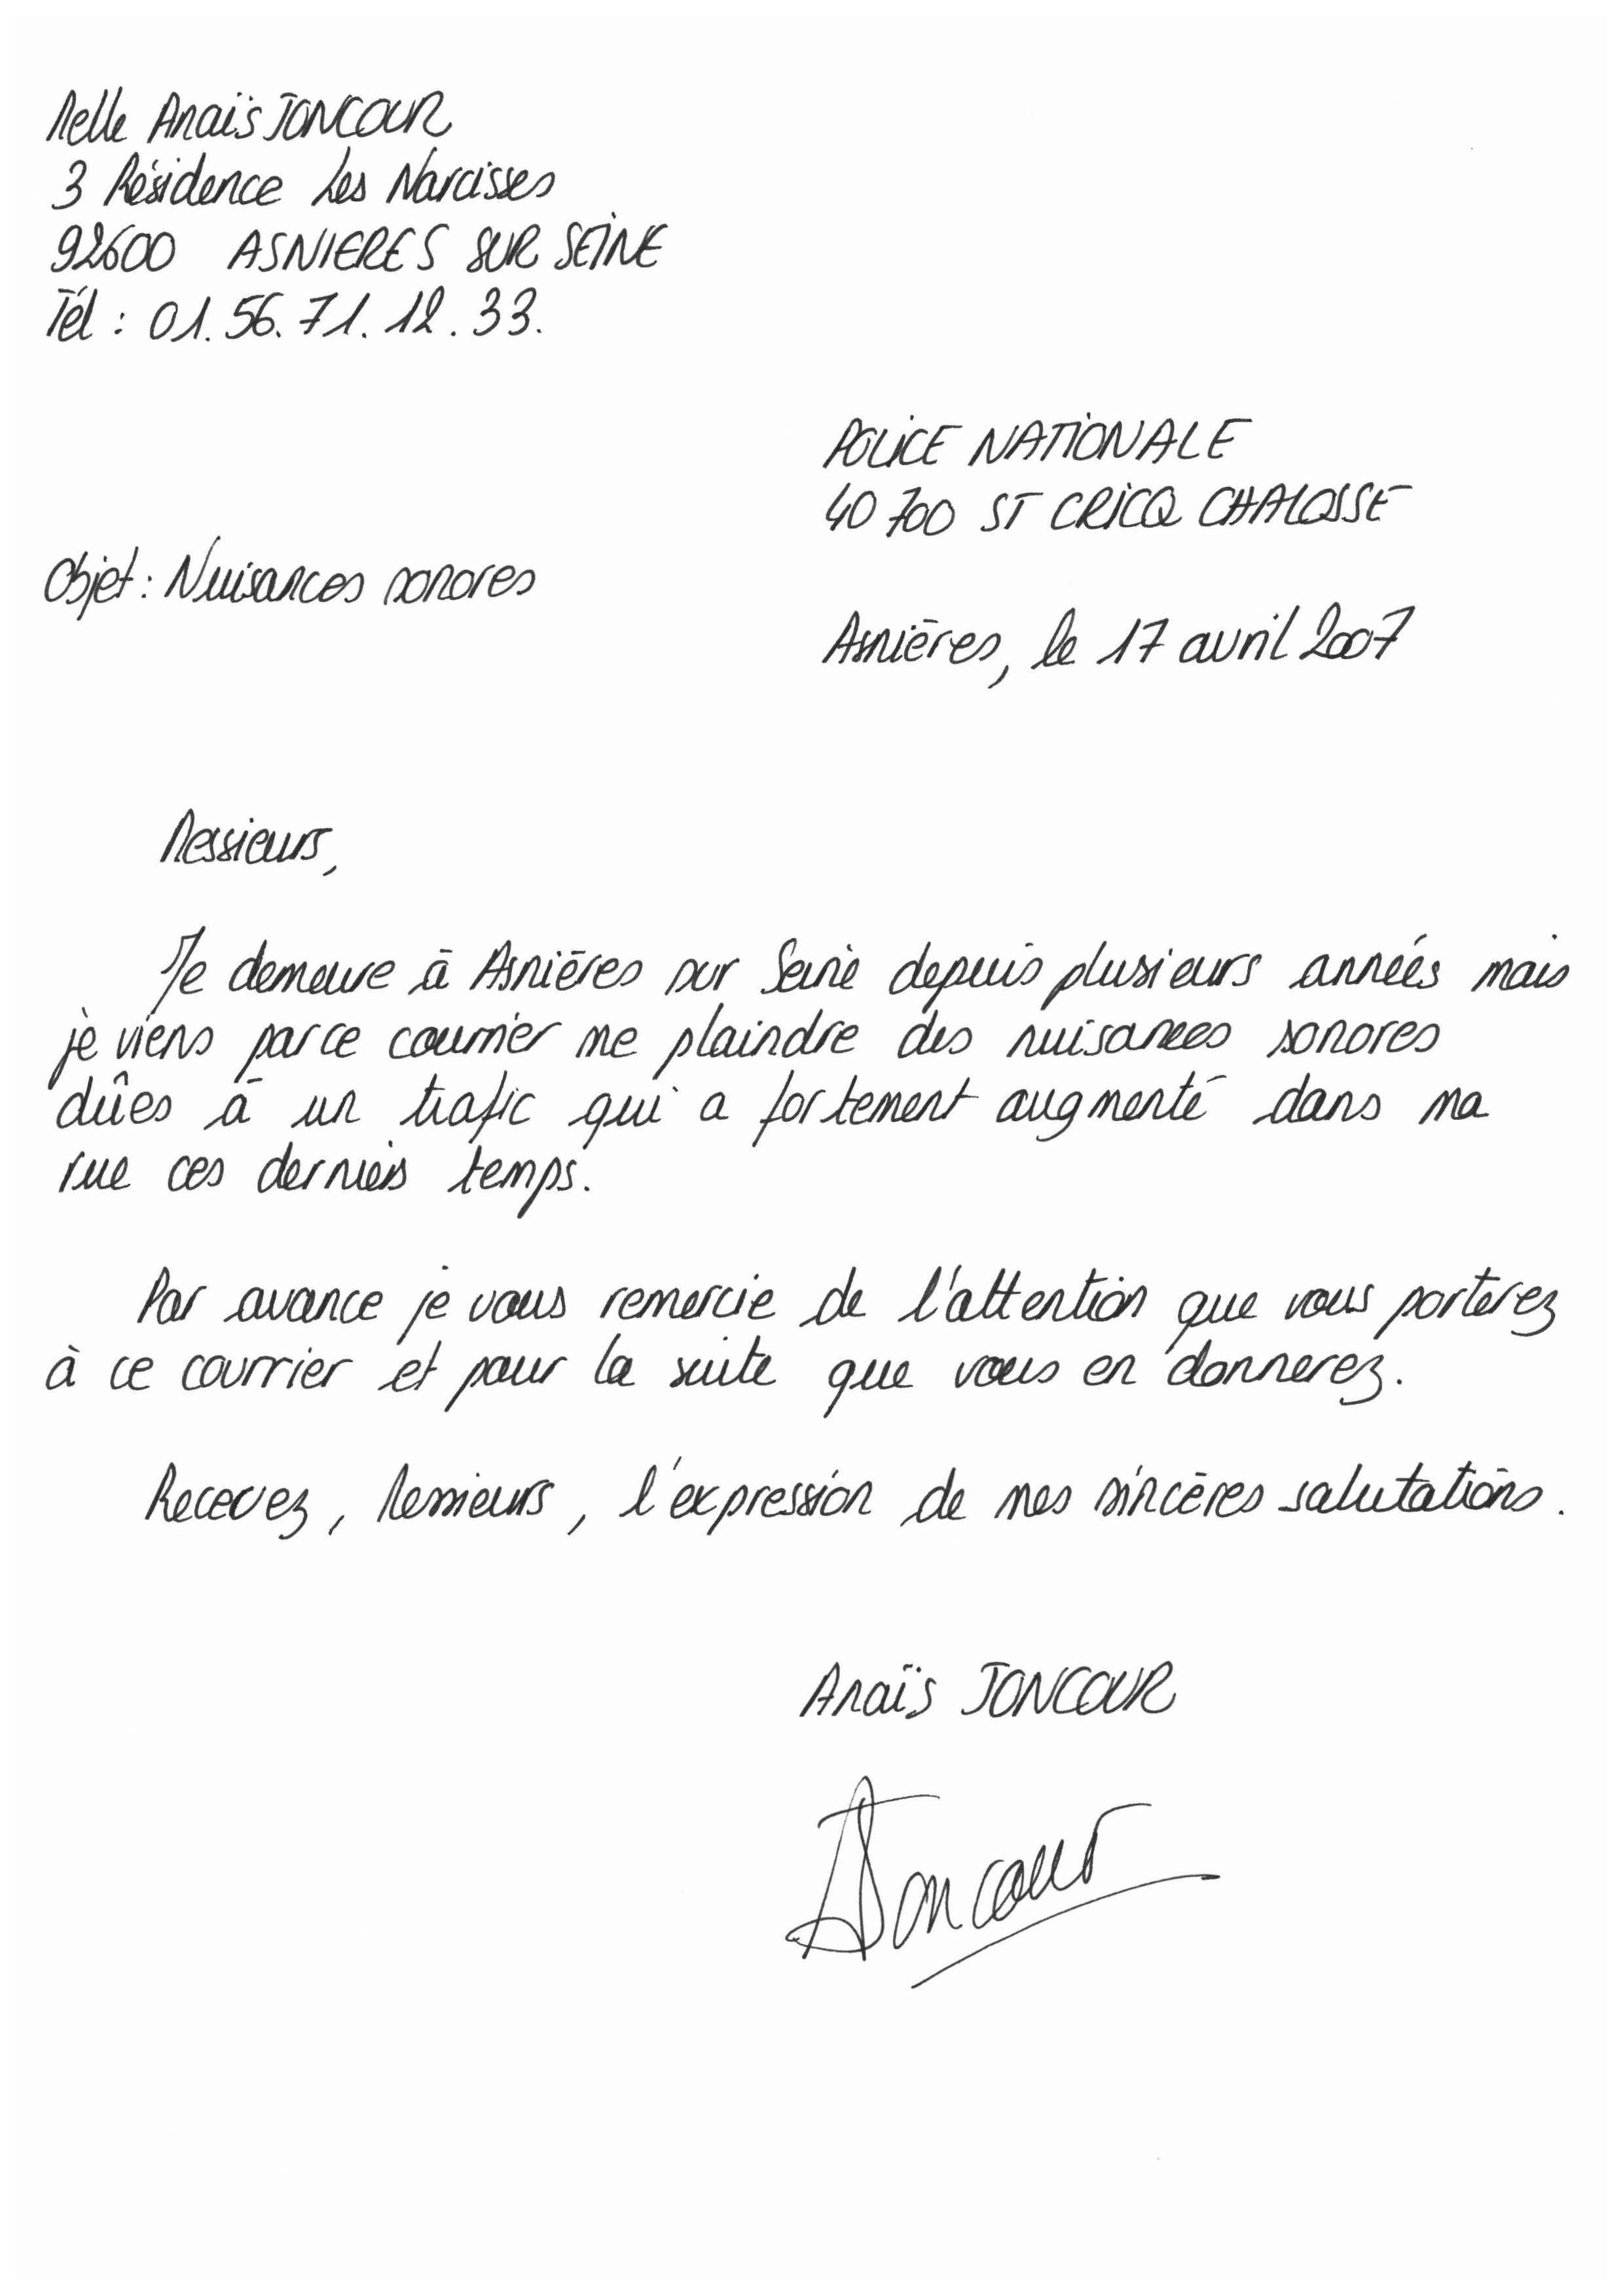 Melle Anaïs JONCOUR
3 Résidence Les Narcisses
92600 ASNIERES SUR SEINE
Tél : 01.56.71.12.33.
POLICE NATIONALE
40 700 ST CRICQ CHALOSSE
Objet : Nuisances sonores
Asnières, le 17 avril 2007
Messieurs,
Je demeure à Asnières sur Seine depuis plusieurs années mais
je viens par ce courrier me plaindre des nuisances sonores
dûes à un trafic qui a fortement augmenté dans ma
rue ces derniers temps.
Par avance je vous remercie de l'attention que vous porterez
à ce courrier et pour la suite que vous en donnerez.
Recevez, Messieurs, l'expression de mes sincères salutations.
Anaïs JONCOUR
AJoncour